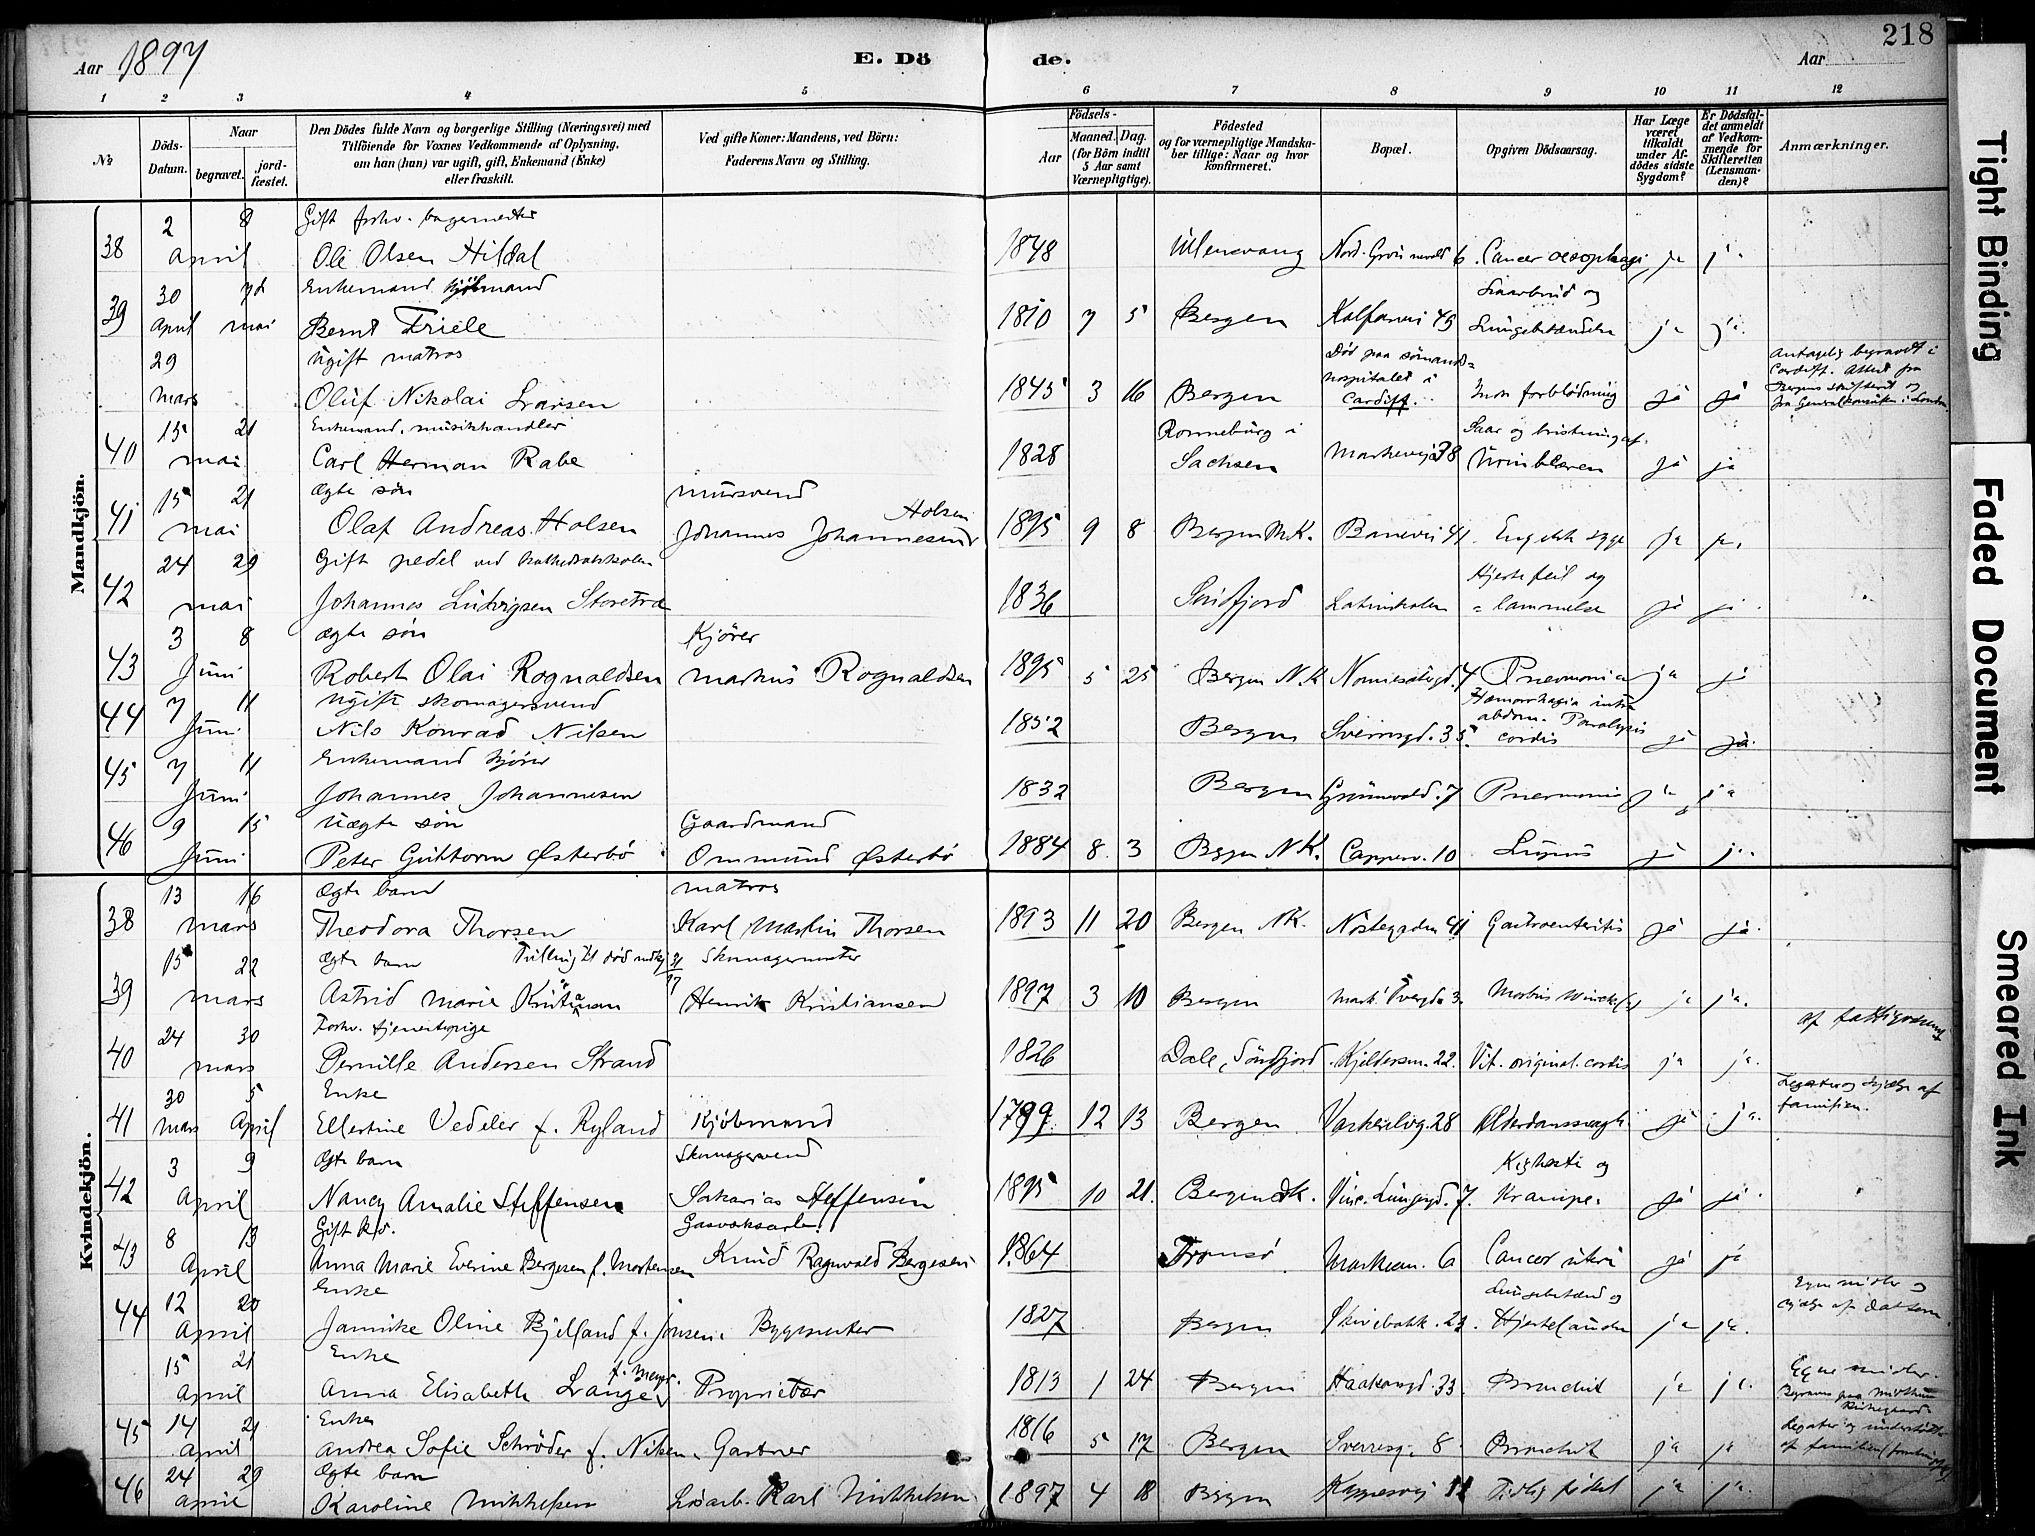 218
Aar 1897
E. Dö de.
Aar
1 2 3 4 5 6 7 8 9 10 11 12
№
Döds-Datum.
Naar
begravet.
jord-fæstet.
Den Dödes fulde Navn og borgerlige Stilling (Næringsvei) med
Tilföiende for Voxnes Vedkommende af Oplysning,
om han (hun) var ugift, gift, Enkemand (Enke)
eller fraskilt.
Ved gifte Koner: Mandens, ved Börn:
Faderens Navn og Stilling.
Födsels-
Aar
Maaned.
Dag.
(for Börn indtil
5 Aar samt
Værnepligtige).
Födested
og for værnepligtige Mandska-
ber tillige: Naar og hvor
konfirmeret.
Bopæl.
Opgiven Dödsaarsag.
Har Læge
været
tilkaldt
under Af-
dödes sidste
Sygdom?
Er Dödsfal-
det anmeldt
af Vedkom-
mende for
Skifteretten
(Lensman-
den)?
Anmærkninger.
Mandkjön.
2 8 Gift forhv. bagermester
38 April Ole Olsen Hildal 1848 Ullensvang 6. Cancer oesophagi ja ja
30 7d Enkemand kjøbmand og
39 April mai Bernt Friele 1810 7 5 Bergen Kalfarvei 45 Lungebetændelse ja ja
29 Ugift matros Död paa sömands- Antagelig begravet i
hospitalet i Cardiff. Attest fra
mars Oluf Nikolai Larsen 1845 3 16 Bergen Cardiff. forblödning ja ja Bergens skifteret og
fra Generalkonsulen i London.
15 21 Enkemand, musikhandler Ronneburg i Saar og bristning af
40 mai Carl Herman Rabe 1828 Sachsen Markevei 38 Urinblæren ja ja
15 21 ægte sön mursvend Holsen
41 mai Olaf Andreas Holsen Johannes Johannesen 1895 9 8 Bergen N.K. Banevei 41 Engelsk syge ja ja
24 29 Gift pedel ved kathedralskolen Hjertefeil og
42 mai Johannes Ludvigsen Storetra 1836 Söndfjord Latinskolen = lammelse ja ja
3 8 ægte sön Kjörer
43 Juni Robert Olai Rognaldsen Markus Rognaldsen 1895 5 25 Bergen N.K. 4 Pneumonia ja ja
7 11 Ugift skomagersvend Hæmorrhagia intra
44 Juni Nils Konrad Nilsen 1852 Bergen Sverresgd. 35. abdom. Paralysis cordis ja ja
7 11 Enkemand kjörer
45 Juni Johannes Johannesen 1832 Bergen Grünevold. 7 Pneumonia ja ja
9 15 Uægte sön Gaardmand
46 Juni Peter Guttorm Østerbö Ommund Østerbö 1884 8 3 Bergen N.K. Cappev. 10 Lupus ja ja
Kvindekjön.
13 16 ægte barn matros
38 mars Theodora Thorsen Karl Martin Thorsen 1893 11 20 Bergen N.K. Nöstegaden 41 Gastroenteritis ja ja
15 22 ægte barn Tvilling Skomagermester
39 mars Astrid Marie Henrik Kristiansen 1897 3 10 Bergen 3. Morbus ja ja
24 30 Forhv. tjenestepige af fattigvæsenet
40 mars Pernille Andersen Strand 1826 Dale, Söndfjord 22. Vit. original. cordis ja ja
30 5 Enke Legater og hjælp af
41 mars April Ellertine Vedeler f. Ryland Kjöbmand 1799 12 13 Bergen 28 Alderdomssvagh. ja ja familien.
3 9 ægte barn Skomagersvend Kighoste og
42 April Nancy Amalie Steffensen Sakarias Steffensen 1895 10 21. Bergen Dk. 7. Krampe. ja ja
8 13 Gift k. Gasverksarb.
43 April Anna Marie Everine Bergesen f. Mortensen Knud Ragnvald Bergesen 1864 Tromsö 6 Cancer uteri ja ja
12 20 Enke Lungebetænd og Egne midler og
44 April Jannike Oline Bjelland f. Jonsen. Bygmester 1827 Bergen Skivebakk. 23. ja ja hjælp af datteren.
15 21 Enke f. Meyer. Egne midler.
April Anna Elisabeth Lange Proprietær 1813 1 24 Bergen Haakonsgd. 33 Bronchit ja ja Begraves paa Kirkegaard.
14 21 Enke Legater og understöttelse
45 April Andrea Sofie Schröder f. Nilsen. Gartner 1816 5 17 Bergen Sverresg. 8 Bronchit ja ja af familien
24 29 ægte barn
46 April Karoline Mikkelsen Lösarb. Karl Mikkelsen 1897 4 18 Bergen 12 Tidlig födt ja ja
Tight Binding
Faded Document
Smeared Ink